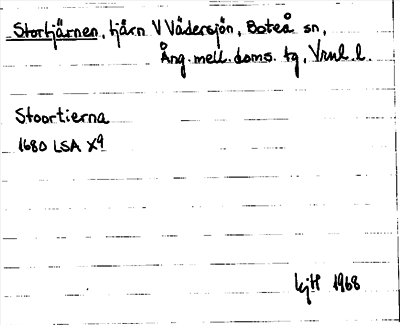 Stortjärnen, tjärn V Vädersjön, Boteå sn,
Ång. mell. doms. tg, Vrnl. l.
Stoortierna
1680 LSA X9
LjH 1968